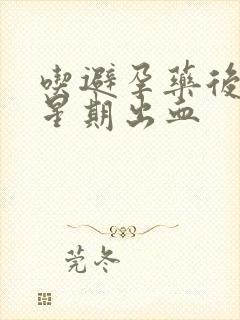 喫避孕藥後
星期出血
莞冬